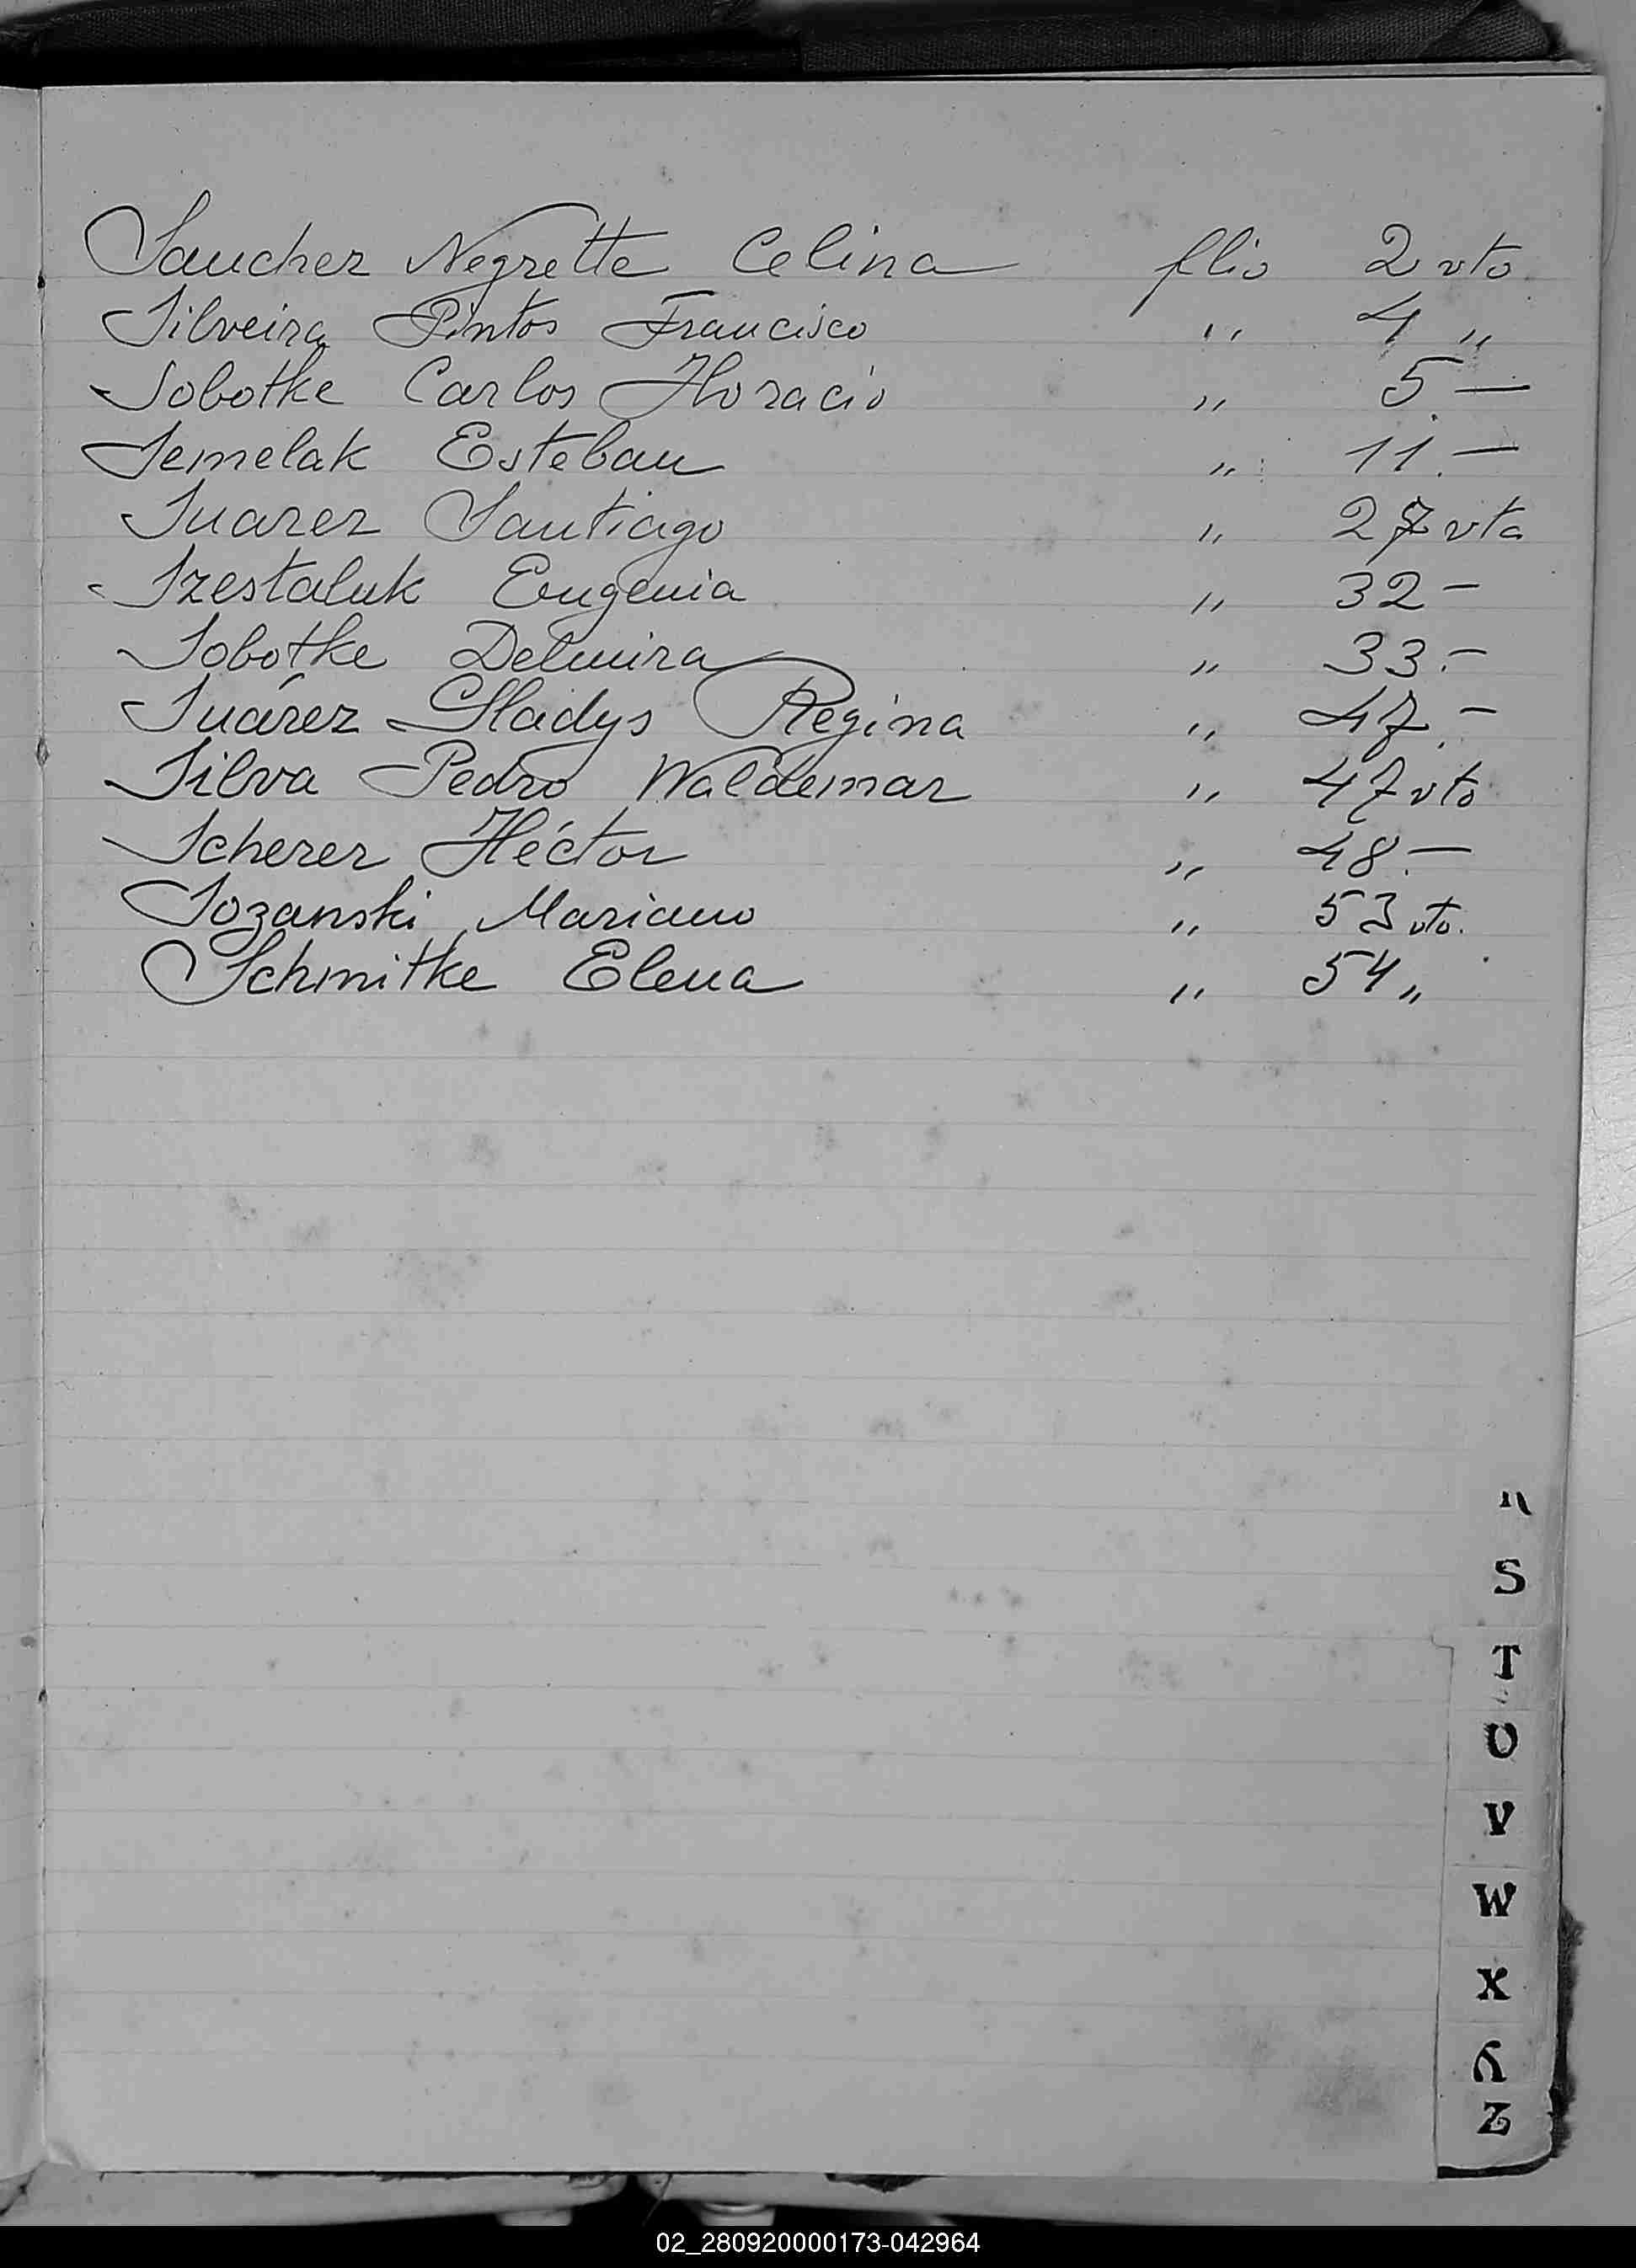 Sanchez Negrette Celina flio 2 vto.
Silveira Pintos Francisco " 4 "
Sobotke Carlos Horacio " 5.—
Semelak Esteban " 11.—
Suarez Santiago " 27 vta
Szestaluk Eugenia " 32-
Sobotke Delmira " 33.-
Suárez Gladys Regina " 47.-
Silva Pedro Waldemar " 47 vto
Scherer Héctor " 48.—
Sozanski Mariano " 53 vto.
Schmitke Elena " 54 "
S
T
U
V
W
X
Y
Z
02_280920000173-042964